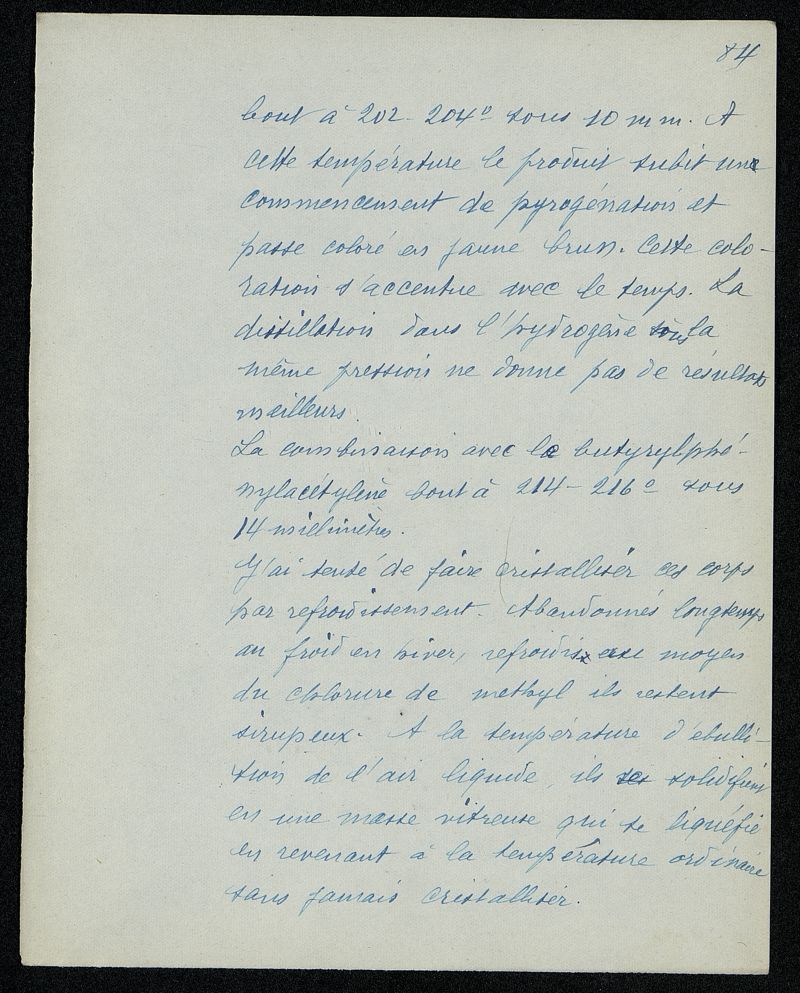 84
bout à 202-204° sous 10 mm. A
cette température le produit subit une
commencement de pyrogénation et
passe coloré en jaune brun. Cette colo-
ration s'accentue avec le temps. La
distillation dans l'hydrogène sous la
même pression ne donne pas de résultats
meilleurs.
La combinaison avec le butyrylphé-
nylacétylène bout à 214-216° sous
14 millimètres.
J'ai tenté de faire cristalliser ces corps
par refroidissement. Abandonnés longtemps
au froid en hiver, refroidis au moyen
du chlorure de méthyl ils restent
sirupeux. A la température d'ébulli-
tion de l'air liquide, ils se solidifient
en une masse vitreuse qui se liquéfie
en revenant à la température ordinaire
sans jamais cristalliser.